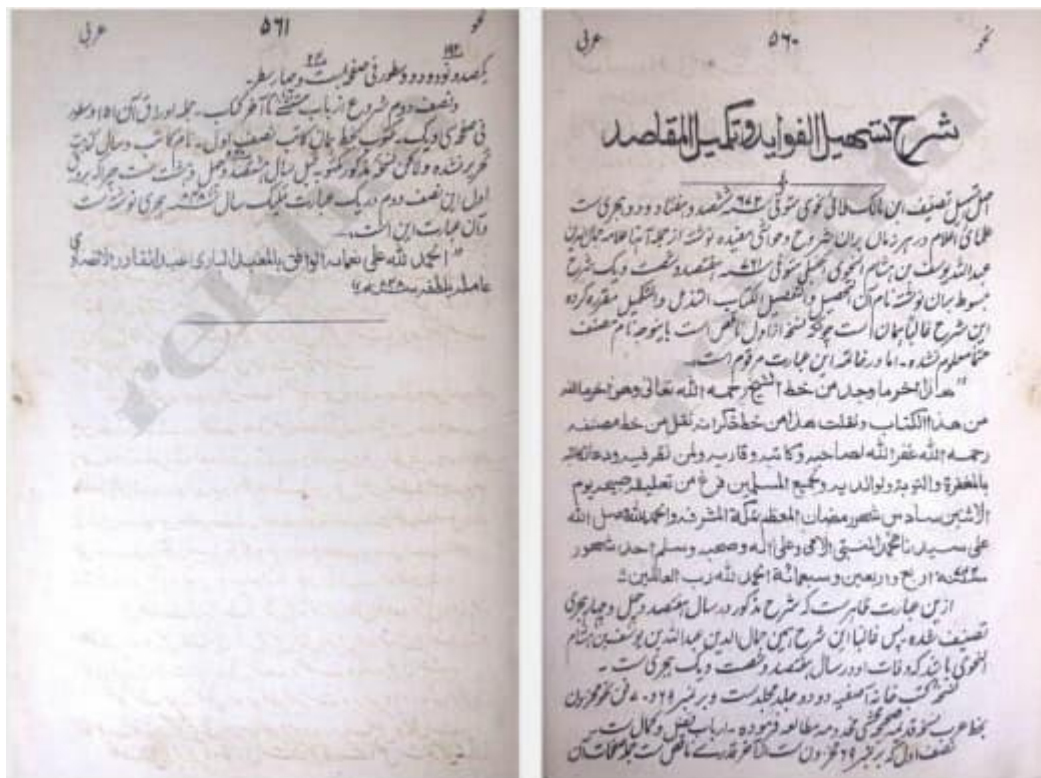 نحو
۵۶۰
عربی
شرح تسهیل الفواید و تکمیل المقاصد
اصل تسهیل تصنیف ابن مالک طائی نحوی متوفی ۶۷۲ ششصد و هفتاد و دو هجری ست
علمای اعلام در هر زمان بران شروح و حواشی مفیده نوشته از جمله آنها علامه جمال الدین
عبدالله یوسف بن هشام النحوی الحنبلی متوفی سنه هفتصد و شصت و یک شرح
مبسوط بران نوشته نام آن التحصیل و التفصیل لکتاب التذییل و التکمیل مقرر کرده
این شرح غالباً همان است چونکه نسخه از اول ناقص است باینوجه نام مصنف
حتماً معلوم نشده۔ اما در خاتمه این عبارت مرقوم است۔
"هذا اخر ما وجد من خط الشیخ رحمه الله تعالی وهو اخر ما
من هذا الکتاب ونقلت هذا من خط ذکر انه نقل من خط مصنفه
رحمه الله غفر الله لصاحبه وکاتبه وقاریه ولمن نظر فیه ودعا لکاتبه
بالمغفرة والتوبة ولوالدیه ولجمیع المسلمین فرغ من تعلیقه صبحه یوم
الاثنین سادس شهر رمضان المعظم بمکة المشرفه والحمد لله وصلی الله
علی سیدنا محمد النبی الامی وعلی اله وصحبه وسلم احد شهور
سنة اربع واربعین وسبعمائة الحمد لله رب العالمین
ازین عبارت ظاهر ست که شرح مذکور در سال هفتصد و چهل و چهار هجری
تصنیف شده پس غالباً این شرح همین جمال الدین عبدالله بن یوسف بن هشام
النحوی باشد که وفات او در سال هفتصد و شصت و یک هجری ست۔
نسخه کتب خانه آصفیه در دو جلد مجلد ست و بر نمبر ۶۹ و ۷۰ فن نحو مخزون
بخط عرب نسخه قدیمه صحیحه محشی مخدومه مطالعه فرموده ارباب فضل و کمال ست۔
نصف اول که بر نمبر ۶۹ مخزون ست از آخر قدرے ناقص ست جمله صفحات آن
نحو
۵۶۱
عربی
۱۹۲
یکصد و نود و دو و سطور فی صفحه بست و چهار سطر۔
و نصف دوم شروع از باب تا آخر کتاب۔ جمله اوراق آن ۱۵۱ و سطور
فی صفحه سی و یک۔ مکتوب بخط همان کاتب نصف اول۔ نام کاتب و سال کتابت
تحریر نشده و لاکن نسخه مذکور مکتوبه قبل سال هشتصد و چهل و هشت ست چراکه بر ورق
اول این نصف دوم در یک عبارت تملیک سال سنه هجری نوشته ست
و آن عبارت این است۔
"الحمد لله علی نعمائه الوافی بالله الباری عبد القادر الانصاری